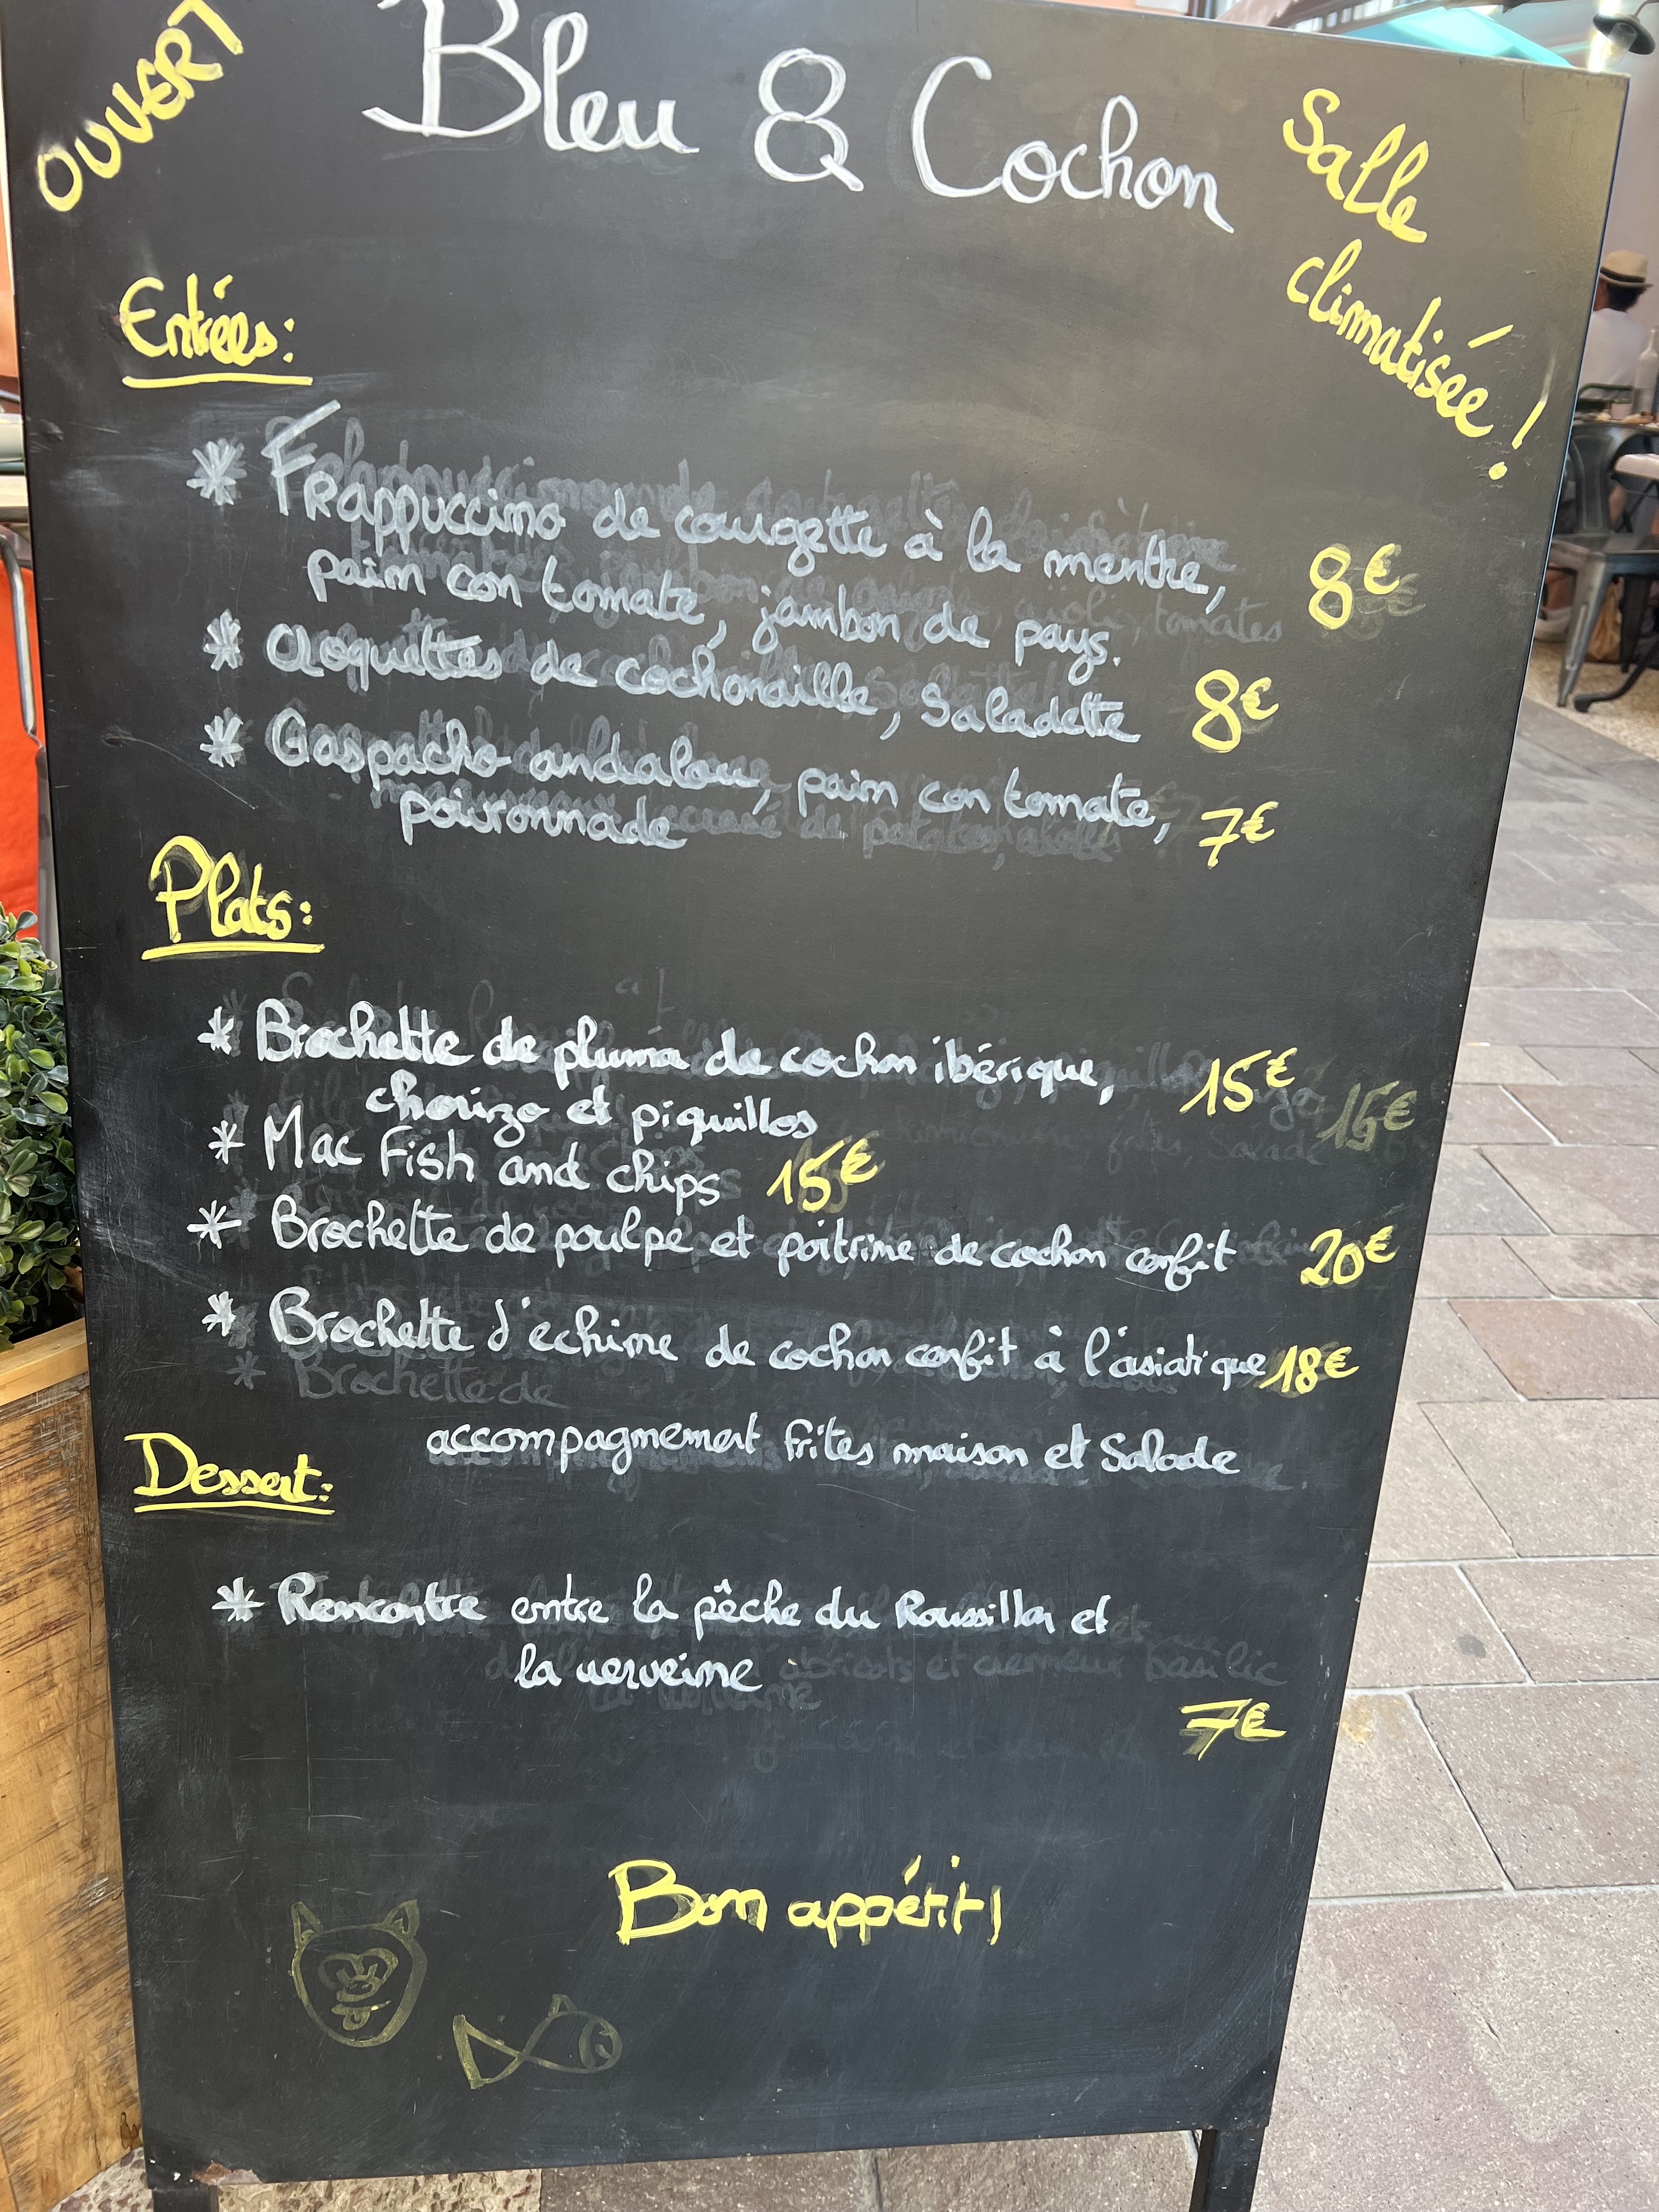 OUVERT
Bleu & Cochon
Salle
climatisée !
Entrées :
* Frappuccino de courgette à la menthe,
pain con tomate, jambon de pays. 8€
* Croquettes de cochonaille, Saladette 8€
* Gaspacho andalou, pain con tomate,
poivronnade 7€
Plats :
* Brochette de pluma de cochon ibérique, 15€
chorizo et piquillos
* Mac Fish and chips 15€
* Brochette de poulpe et poitrine de cochon confit 20€
* Brochette d'échine de cochon confit à l'asiatique 18€
* Brochette de
accompagnement frites maison et Salade
Dessert :
* Rencontre entre la pêche du Roussillon et
la verveine
7€
Bon appétit !